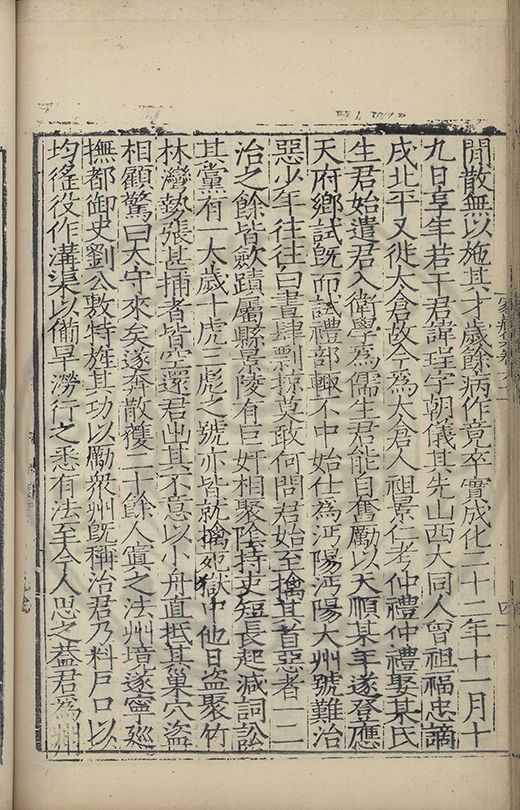 閒散無以施其才歲餘病作竟卒實成化二十二年十一月十
九日享年若干君諱珵字朝儀其先山西大同人曾祖福忠謫
戍北平又徙太倉故今為太倉人祖景仁考仲禮仲禮娶某氏
生君始遣君入衛學為儒生君能自奮勵以天順某年遂登應
天府鄉試旣而試禮部輙不中始仕為沔陽沔陽大州號難治
惡少年往往白晝肆剽掠莫敢何問君始至擒其首惡者一二
治之餘皆斂蹟屬縣景陵有巨奸相聚陰持吏短長起滅詞訟
其黨有一太歲十虎三彪之號亦皆就擒死獄中他日盜聚竹
林灣勢張甚捕者皆空還君出其不意以小舟直抵其巢穴盜
相顧驚曰太守來矣遂奔散獲二十餘人寘之法州境遂寧廵
撫都御史劉公敷特旌其功以勵衆州旣稱治君乃料戶口以
均徭役作溝渠以備旱澇行之悉有法至今人思之葢君為州